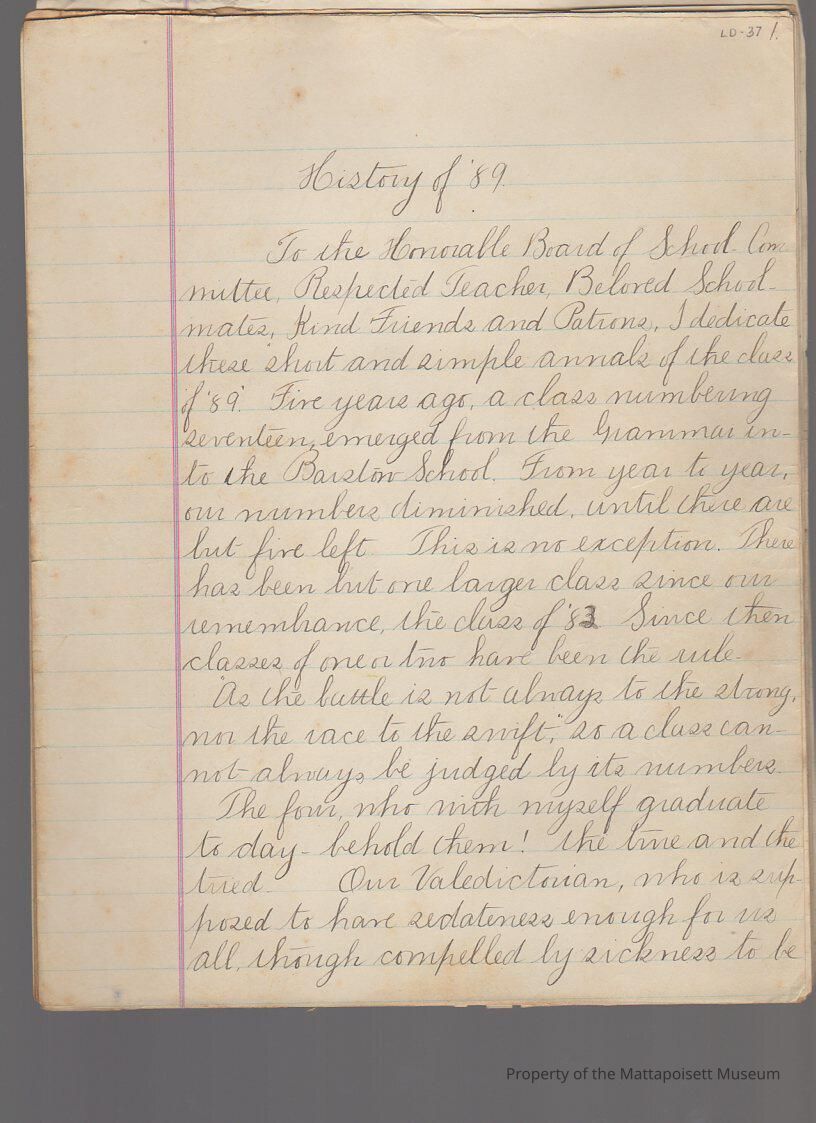 LD-37 1.
History of '89.
To the Honorable Board of School Com-
mittee, Respected Teacher, Beloved School-
mates, Kind Friends and Patrons, I dedicate
these "short and simple annals of the class
of '89". Five years ago, a class numbering
seventeen, emerged from the Grammar in-
to the Barstow School. From year to year,
our numbers diminished, until there are
but five left. This is no exception. There
has been but one larger class since our
remembrance, the class of '83. Since then
classes of one or two have been the rule.
"As the battle is not always to the strong,
nor the race to the swift," so a class can-
not always be judged by its numbers.
The four, who with myself graduate
to day - behold them! the true and the
tried. Our Valedictorian, who is sup-
posed to have sedateness enough for us
all, though compelled by sickness to be
Property of the Mattapoisett Museum